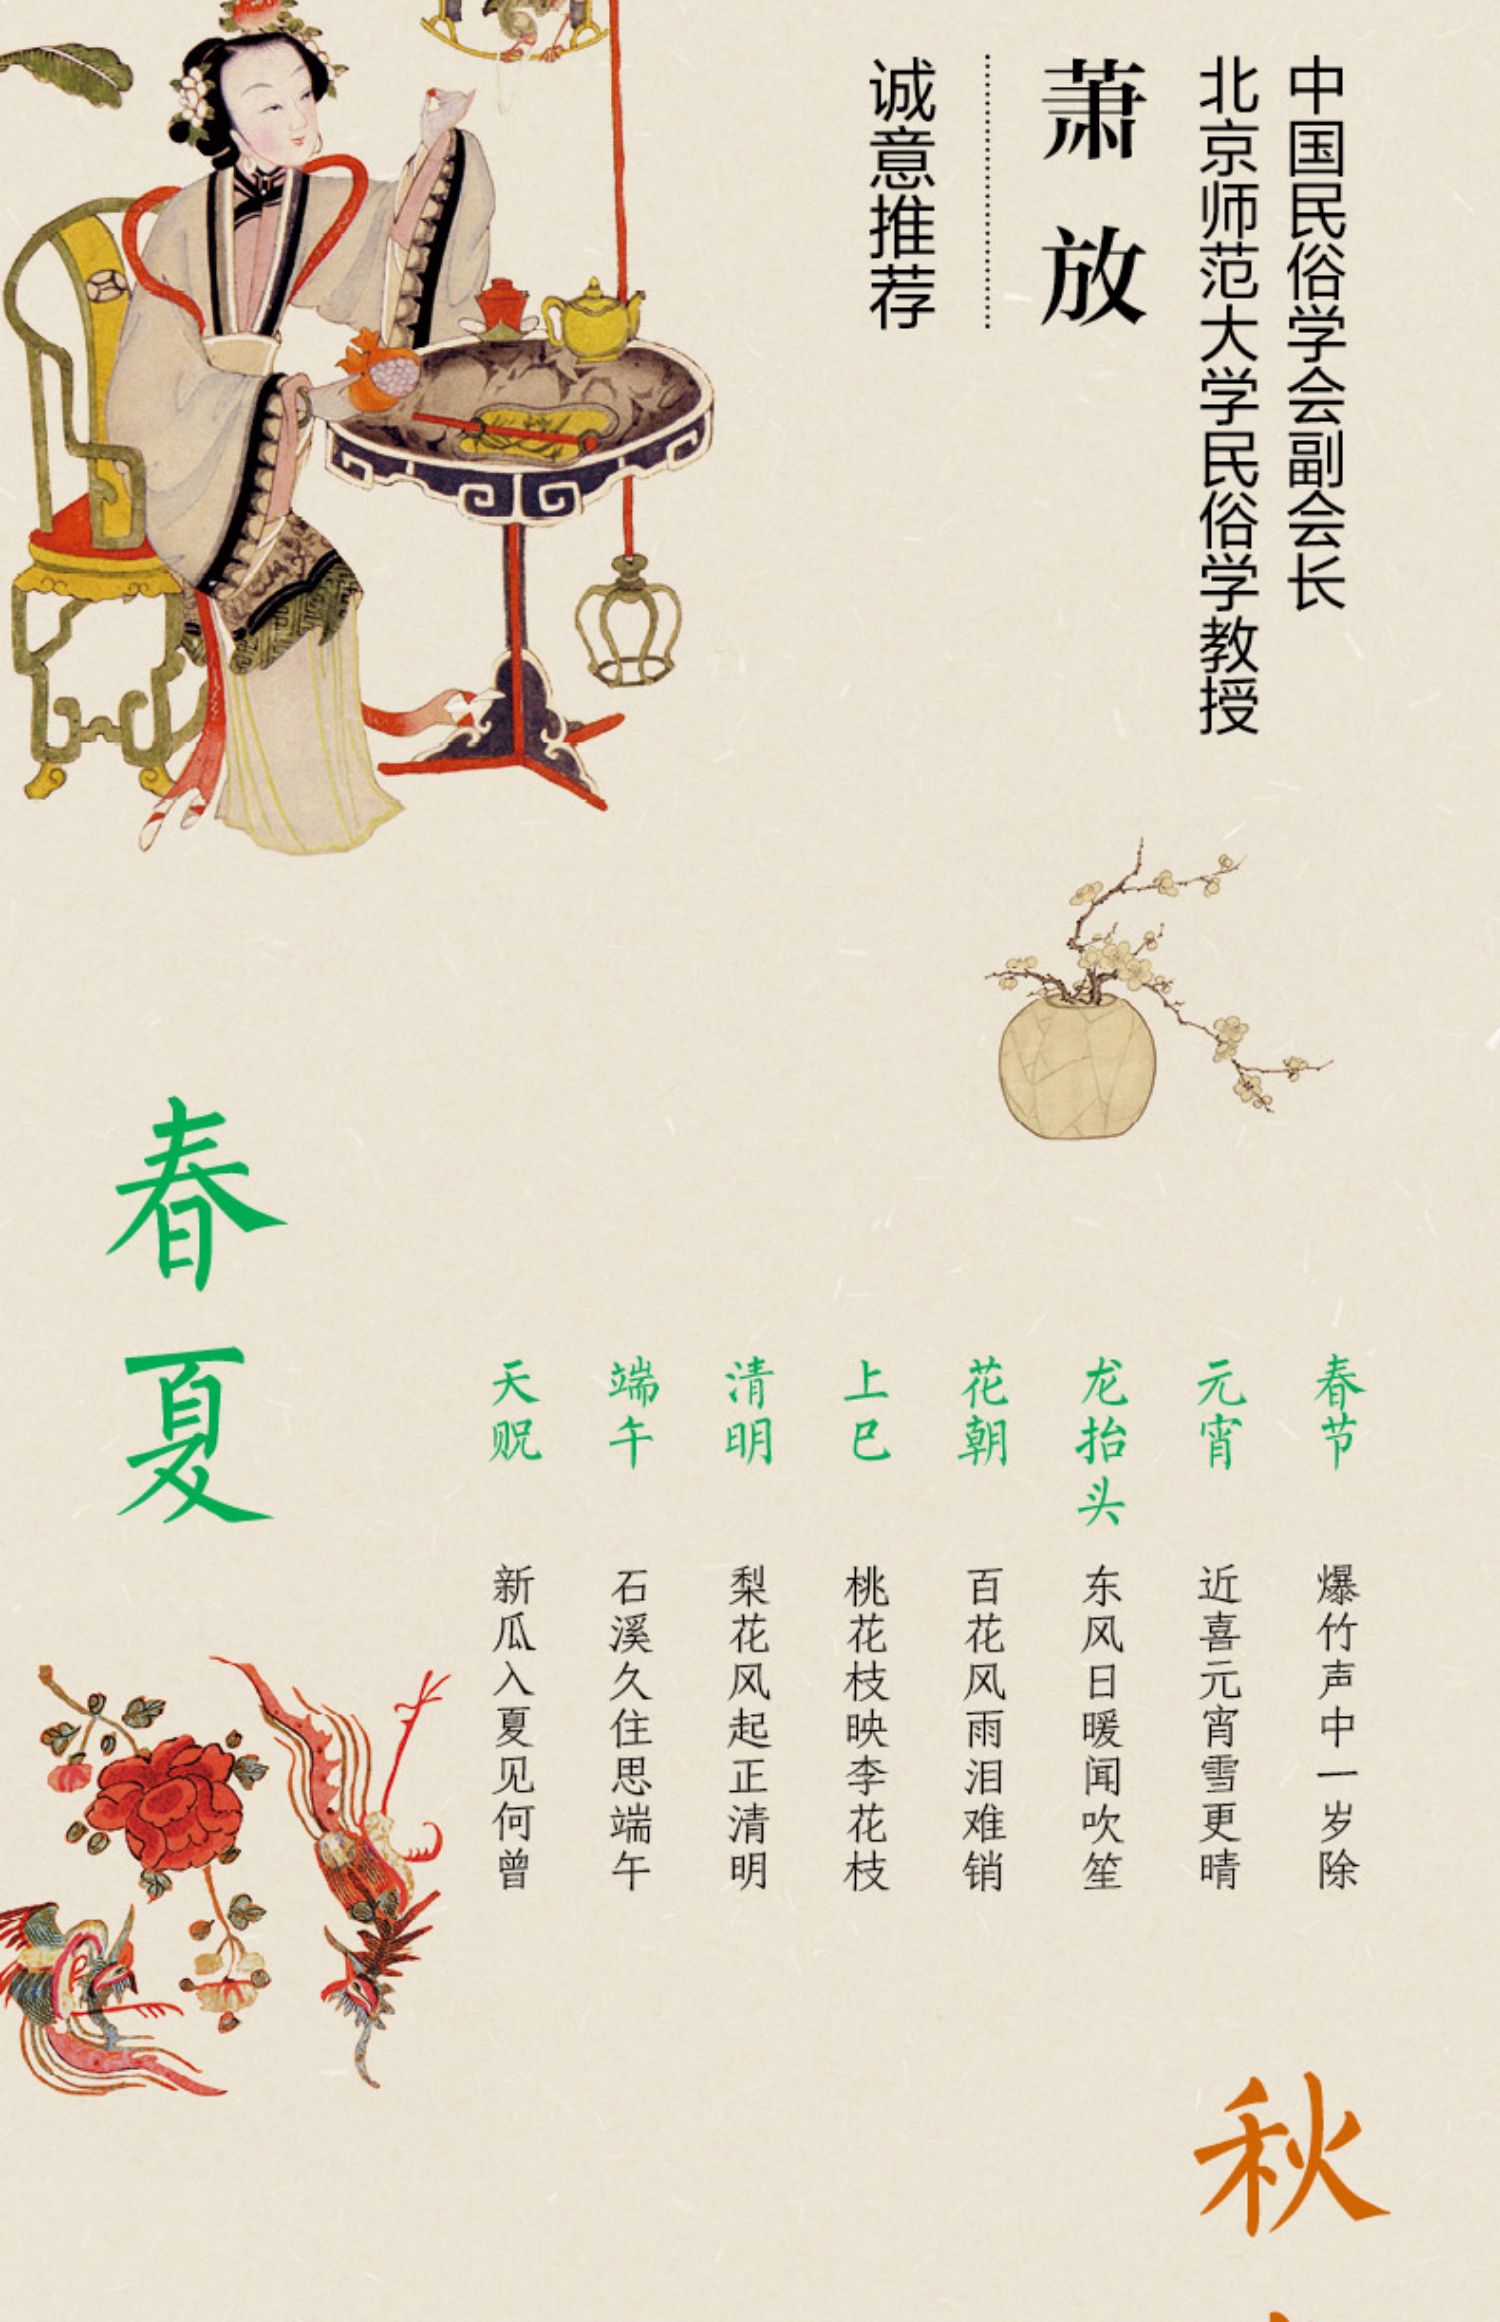 中国民俗学会副会长
北京师范大学民俗学教授
萧放
诚意推荐
春夏
春节 爆竹声中一岁除
元宵 近喜元宵雪更晴
龙抬头 东风日暖闻吹笙
花朝 百花风雨泪难销
上巳 桃花枝映李花枝
清明 梨花风起正清明
端午 石溪久住思端午
天贶 新瓜入夏见何曾
秋